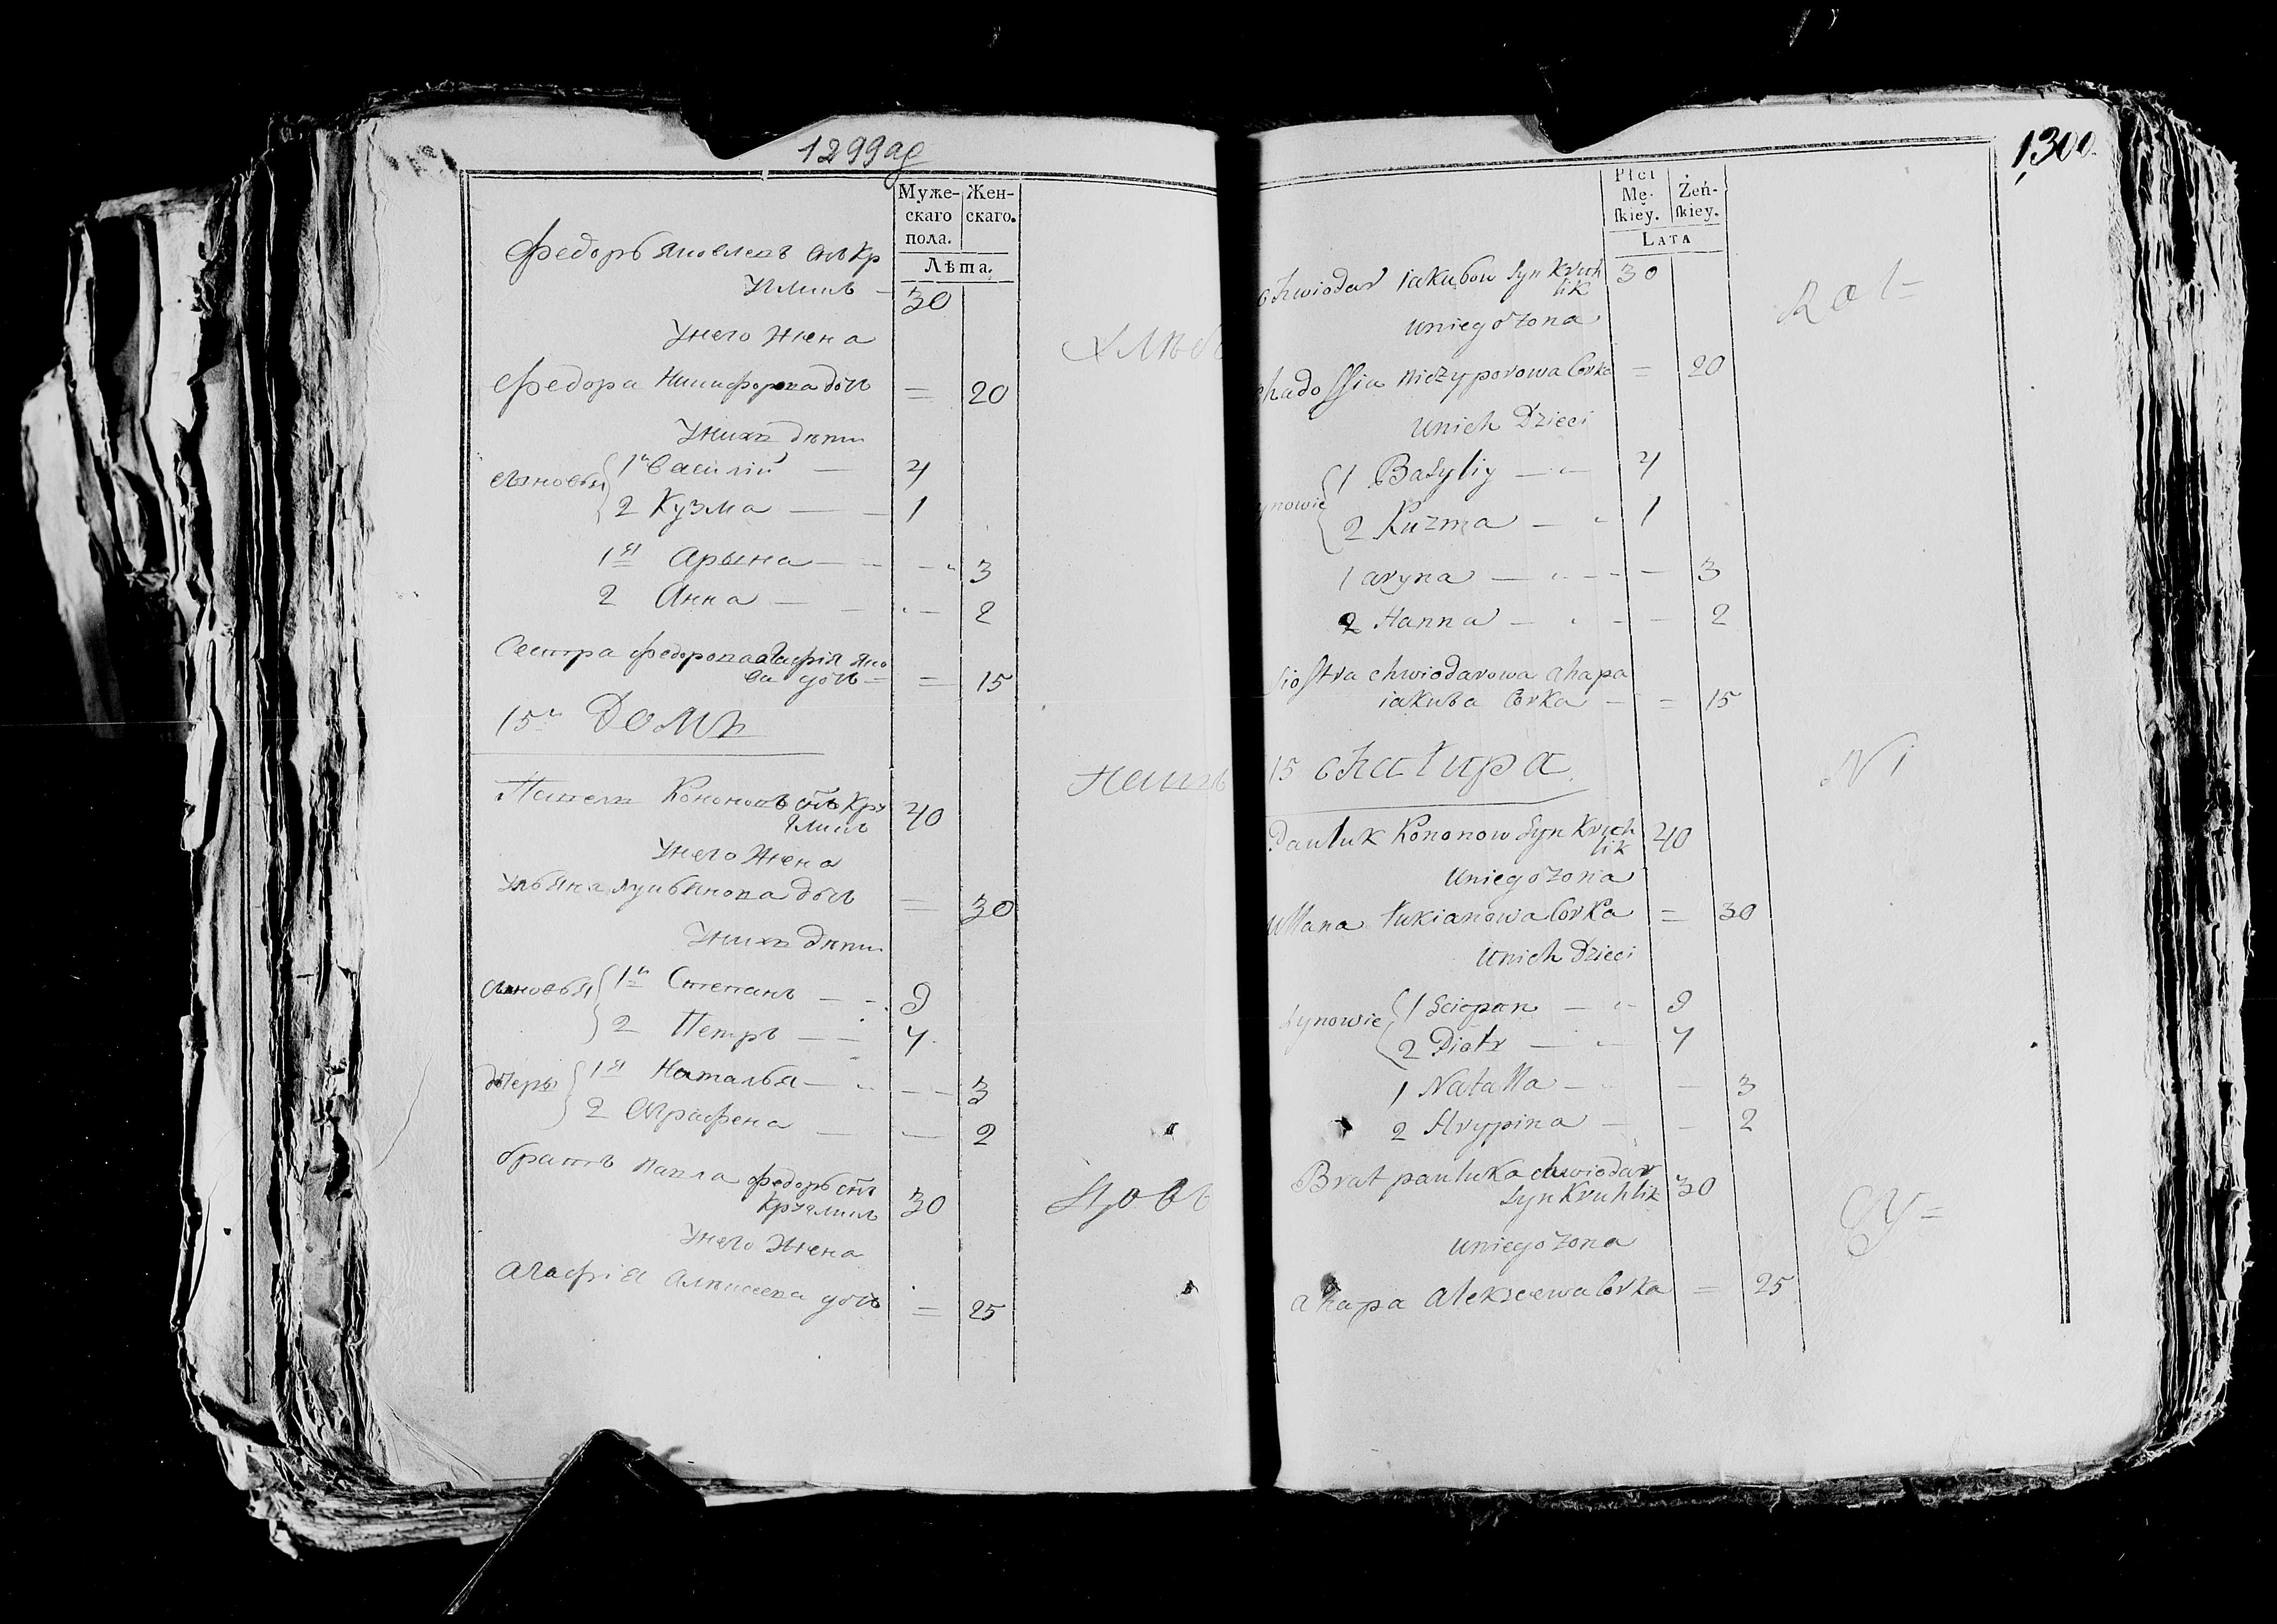 1299 аб
Муже-
скаго
пола.
Жен-
скаго.
Лѣта.
Федоръ Яковлевъ снъ Кр
30
Унего Жена
Федора Никифорова дочь = 20
Унихъ дѣти
Сыновья 1й Василий — 4
2 Кузма — 1
1я Арына — 3
2 Анна — 2
Сестра Федорова Агафія Яко
ва дочь = 15
15й Домъ
Павелъ Кононовъ снъ Кру
гликъ 40
Унего Жена
Ульяна Лукьянова дочь = 30
Унихъ дѣти
Сыновья 1й Степанъ — 9
2 Петръ — 4
дочери 1я Наталья — 3
2 Аграфена — 2
братъ Павла Федоръ снъ
Кругликъ 30
Унего Жена
Агафія Алексеева дочь = 25
хлѣб
Нашъ
1300
Płci
Mę-
skiey.
Żeń-
skiey.
LATA
chwiodar iakubow Syn Kruh
lik 30
uniego żona
chadossia Niczyporowa Corka = 20
unich Dzieci
ynowie 1 Basyliy — 4
2 Kuzma — 1
1 aryna — 3
2 Hanna — 2
Siostra chwiodarowa ahapa
iakuba Corka = 15
15 chałupa
Pauluk Kononow Syn Kruh
lik 40
uniego żona
ullana Łukianowa Corka = 30
unich Dzieci
Synowie 1 Sciepan — 9
2 Piotr — 4
1 Natalla — 3
2 Hrypina — 2
Brat pauluka chwiodar
Syn Kruhlik 30
uniego żona
ahapa Alekseewa Corka = 25
Rol=
N 1